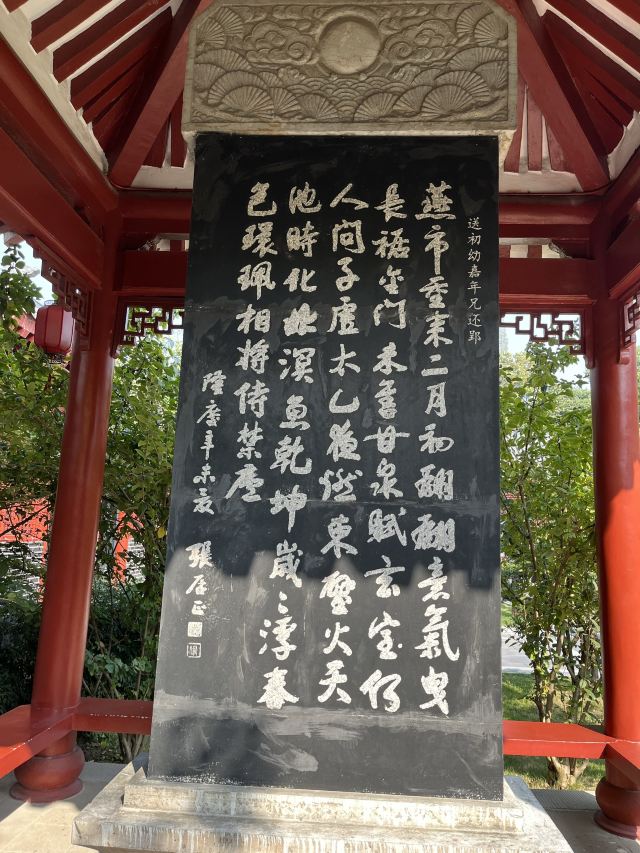 送初幼嘉年兄还郢
燕市重来二月初翩翩意氣曳
長裾金门未售甘泉賦玄室何
人问子虚太乙夜燃東壁火天
池時化北溟魚乾坤歲々浮春
色環珮相將侍禁廬
隆慶辛未夏 張居正